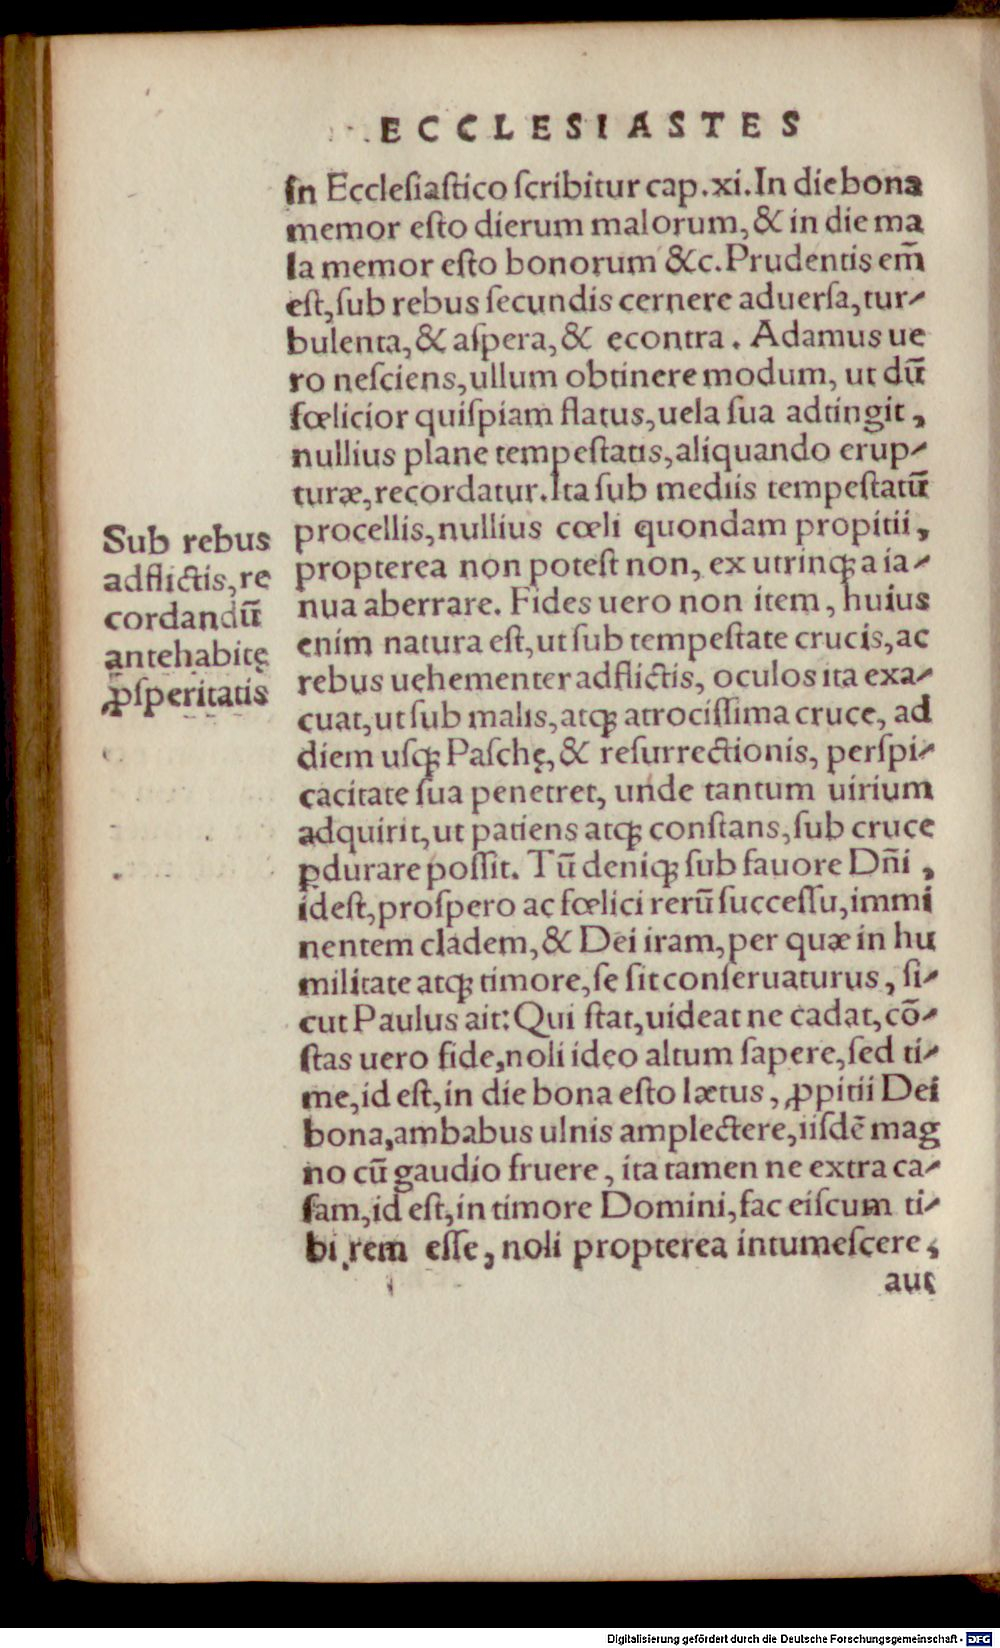 ECCLESIASTES
In Ecclesiastico scribitur cap.xi.In die bona
memor esto dierum malorum, & in die ma
la memor esto bonorum &c. Prudentis em̃
est, sub rebus secundis cernere aduersa, tur-
bulenta, & aspera, & econtra. Adamus ue
ro nesciens, ullum obtinere modum, ut dũ
fœlicior quispiam flatus, uela sua adtingit,
nullius plane tempestatis, aliquando erup-
turæ, recordatur. Ita sub mediis tempestatũ
procellis, nullius cœli quondam propitii,
propterea non potest non, ex utrinqꝫ a ia-
nua aberrare. Fides uero non item, huius
enim natura est, ut sub tempestate crucis, ac
rebus uehementer adflictis, oculos ita exa-
cuat, ut sub malis, atqꝫ atrocissima cruce, ad
diem usqꝫ Paschę, & resurrectionis, perspi-
cacitate sua penetret, unde tantum uirium
adquirit, ut patiens atqꝫ constans, sub cruce
ꝑdurare possit. Tũ deniqꝫ sub fauore Dñi,
idest, prospero ac fœlici rerũ successu, immi
nentem cladem, & Dei iram, per quæ in hu
militate atqꝫ timore, se sit conseruaturus, si-
cut Paulus ait: Qui stat, uideat ne cadat, cõ-
stas uero fide, noli ideo altum sapere, sed ti-
me, id est, in die bona esto lætus, ꝓpitii Dei
bona, ambabus ulnis amplectere, iisdẽ mag
no cũ gaudio fruere, ita tamen ne extra ca-
sam, id est, in timore Domini, fac eiscum ti-
bi rem esse, noli propterea intumescere,
aut
Sub rebus
adflictis, re
cordandũ
antehabitę
ꝓsperitatis
Digitalisierung gefördert durch die Deutsche Forschungsgemeinschaft - DFG